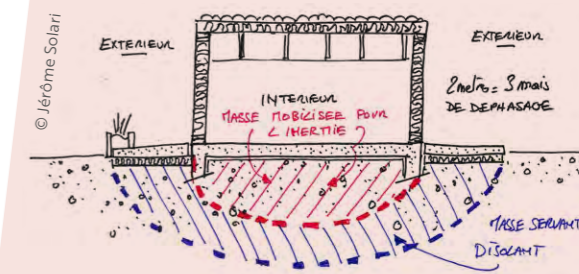 © Jérôme Solari
EXTERIEUR
EXTERIEUR
2 metres = 3 mois
DE DEPHASAGE
INTERIEUR
MASSE MOBILISEE POUR
L'INERTIE
MASSE SERVANT
D'ISOLANT